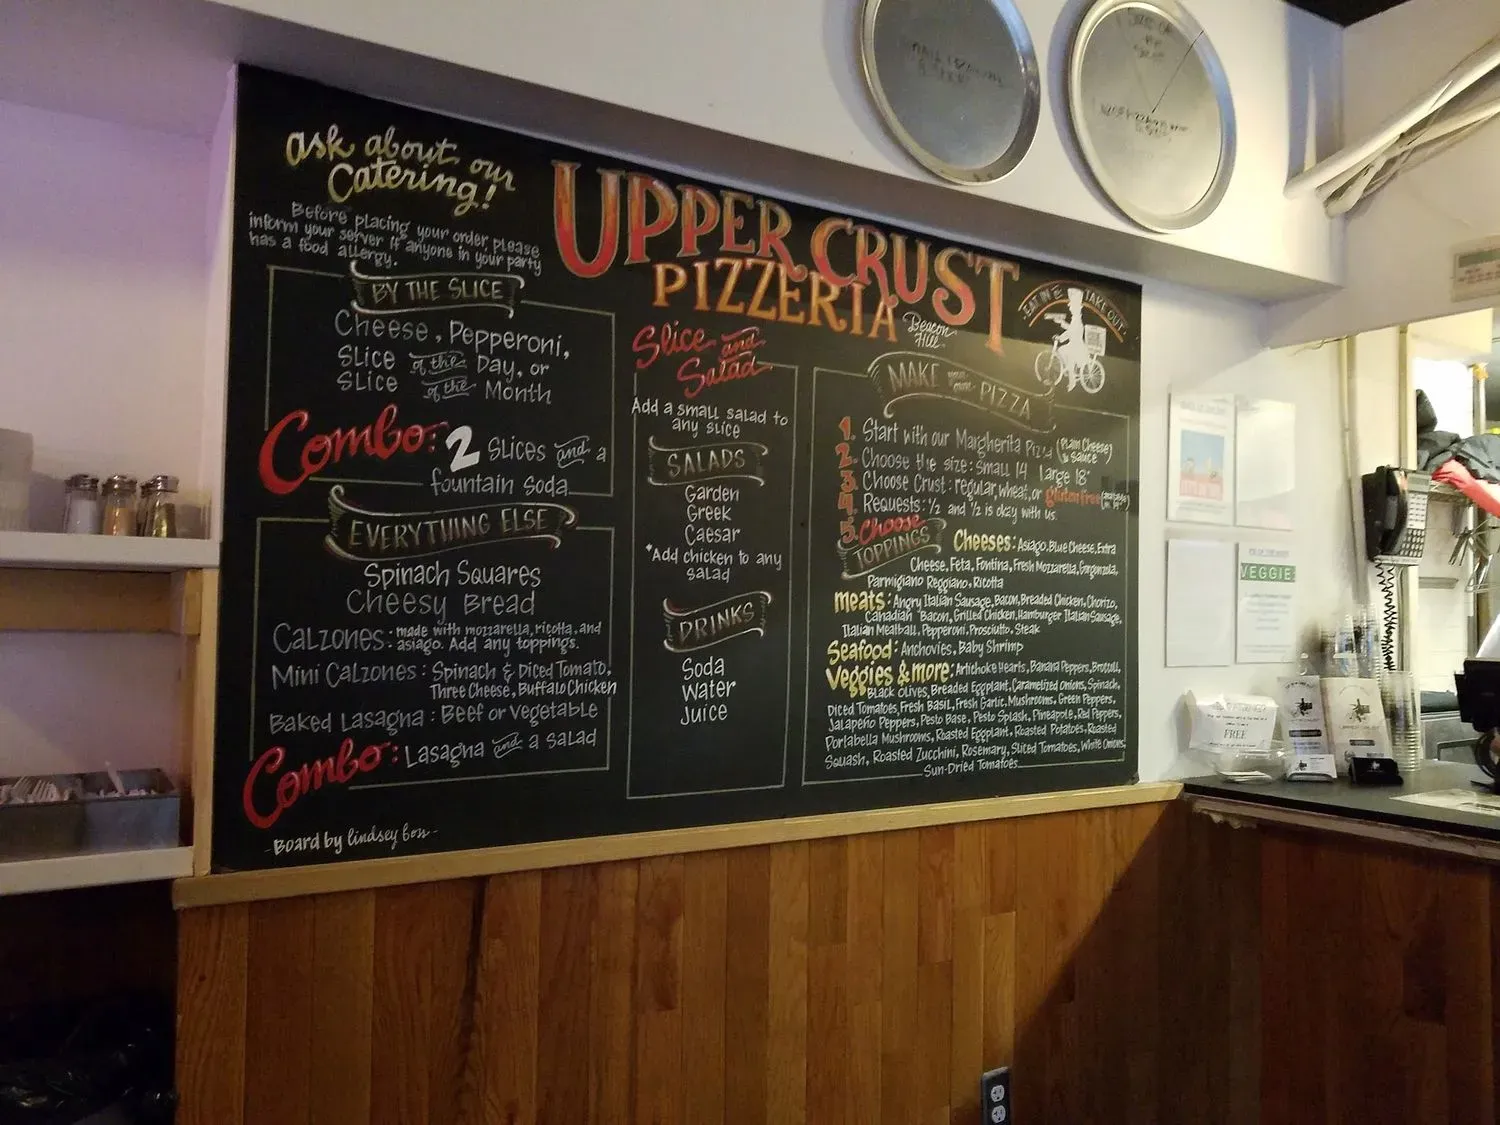 ask about our
Catering!
Before placing your order, please
inform your server if anyone in your party
has a food allergy.
BY THE SLICE
Cheese, Pepperoni,
Slice of the Day, or
Slice of the Month
Combo: 2 Slices and a
fountain Soda
EVERYTHING ELSE
Spinach Squares
Cheesy Bread
Calzones: made with mozzarella, ricotta, and
asiago. Add any toppings.
Mini Calzones: Spinach & Diced Tomato,
Three Cheese, Buffalo Chicken
Baked Lasagna: Beef or Vegetable
Combo: Lasagna and a salad
-Board by lindsey
UPPER CRUST
PIZZERIA
Beacon
Hill
EAT IN & TAKE OUT
Slice and
Salad
Add a small salad to
any slice
SALADS
Garden
Greek
Caesar
*Add chicken to any
salad
DRINKS
Soda
Water
Juice
MAKE your own PIZZA
1. Start with our Margherita Pizza (Plain Cheese & Sauce)
2. Choose the size: small 14" large 18"
3. Choose Crust: regular, wheat, or gluten free
4. Requests: 1/2 and 1/2 is okay with us.
5. Choose
TOPPINGS
Cheeses: Asiago, Blue Cheese, Extra
Cheese, Feta, Fontina, Fresh Mozzarella, Gorgonzola,
Parmigiano Reggiano, Ricotta
meats: Angry Italian Sausage, Bacon, Breaded Chicken, Chorizo,
Canadian Bacon, Grilled Chicken, Hamburger Italian Sausage,
Italian Meatball, Pepperoni, Prosciutto, Steak
Seafood: Anchovies, Baby Shrimp
Veggies & more: Artichoke Hearts, Banana Peppers, Broccoli,
Black Olives, Breaded Eggplant, Caramelized Onions, Spinach,
Diced Tomatoes, Fresh Basil, Fresh Garlic, Mushrooms, Green Peppers,
Jalapeño Peppers, Pesto Base, Pesto Splash, Pineapple, Red Peppers,
Portabella Mushrooms, Roasted Eggplant, Roasted Potatoes, Roasted
Squash, Roasted Zucchini, Rosemary, Sliced Tomatoes, White Onions,
Sun-Dried Tomatoes
VEGGIE
FREE